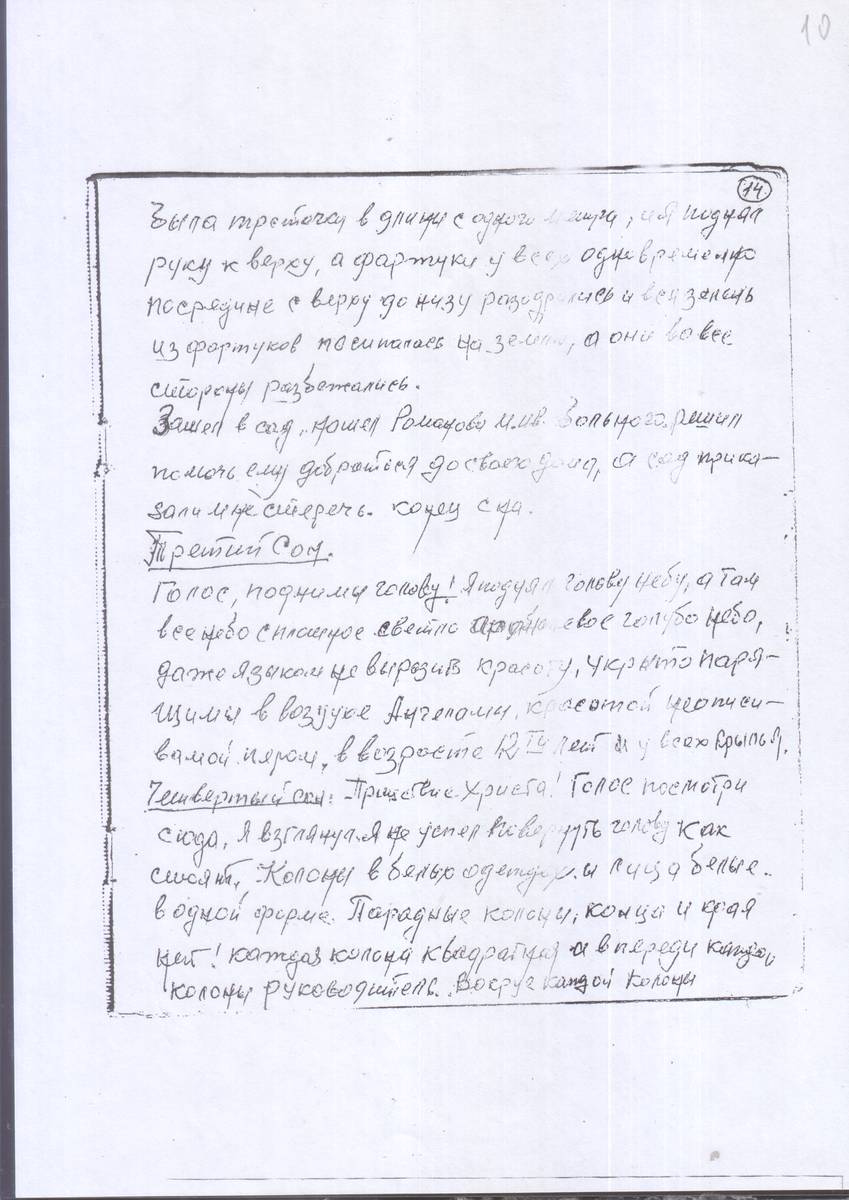 10
14
Была тросточка в длину с одного метра, и я поднял
руку к верху, а фартуки у всех одновременно
посредине с верху до низу разодрались и вся зелень
из фортуков посипалась на землю, а они во все
стороны разбежались.
Зашел в сад, ношел Романова больного, решил
помочь ему добраться до своего дома, а сад прика-
зали мне стеречь. конец сна.
Третий Сон.
Голос, подними голову! Я поднял голову небу, а там
все небо сплошное светло голубо небо,
даже языком не выразить красоту, укрыто паря-
щими в воздухе Ангелами, красотой неописи-
вамой, в возрасте 12 лет и у всех крылья.
Четвертый сон: Пришествие Христа! Голос посмотри
сюда, Я взглянул. я не успел повернуть голову как
стоят, Колоны в белых одеждах и лица белые.
в одной форме. Парадные колоны, конца и края
нет! каждая колона квадратная и впереди каждой
колоны руководитель. Вокруг каждой Колоны